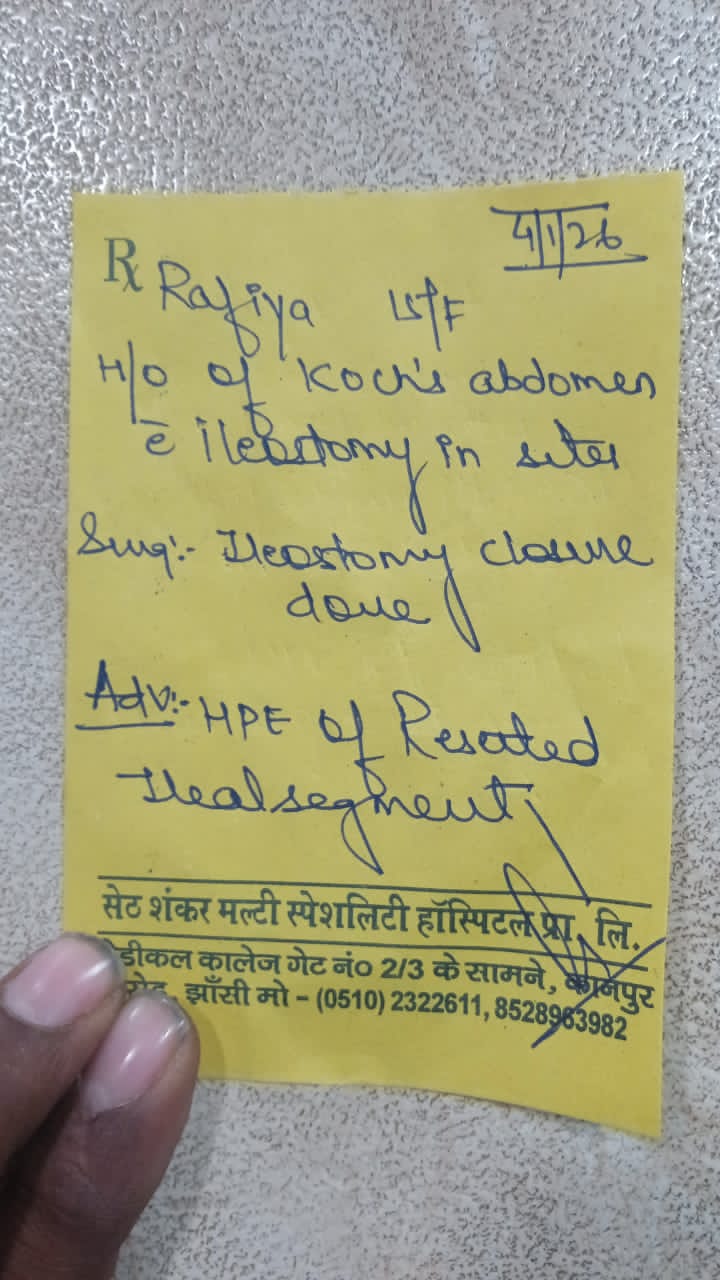 4/1/26
Rx Rafiya 15/F
H/O of Koch's abdomen
c̄ ileostomy in situ
Surg:- Ileostomy closure
done
Adv:- HPE of Resected
Ileal segment
सेठ शंकर मल्टी स्पेशलिटी हॉस्पिटल प्रा. लि.
मेडीकल कालेज गेट नं० 2/3 के सामने, कानपुर
रोड, झाँसी मो - (0510) 2322611, 8528963982